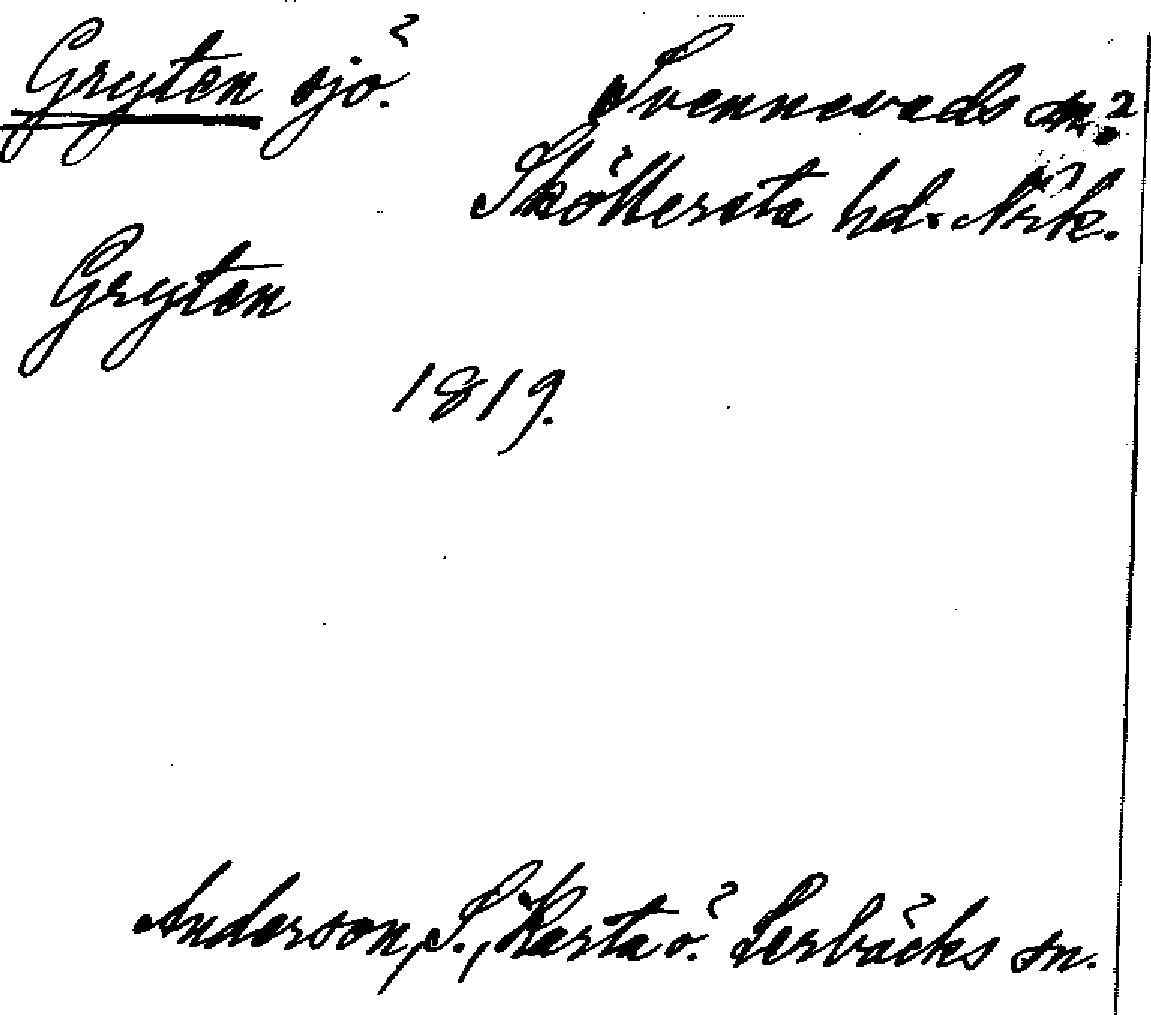 Gryten sjö. Svennevads sn.
Sköllersta hd. Nrk.
Gryten
1819.
Anderson, S., Karta ö. Lerbäcks sn.